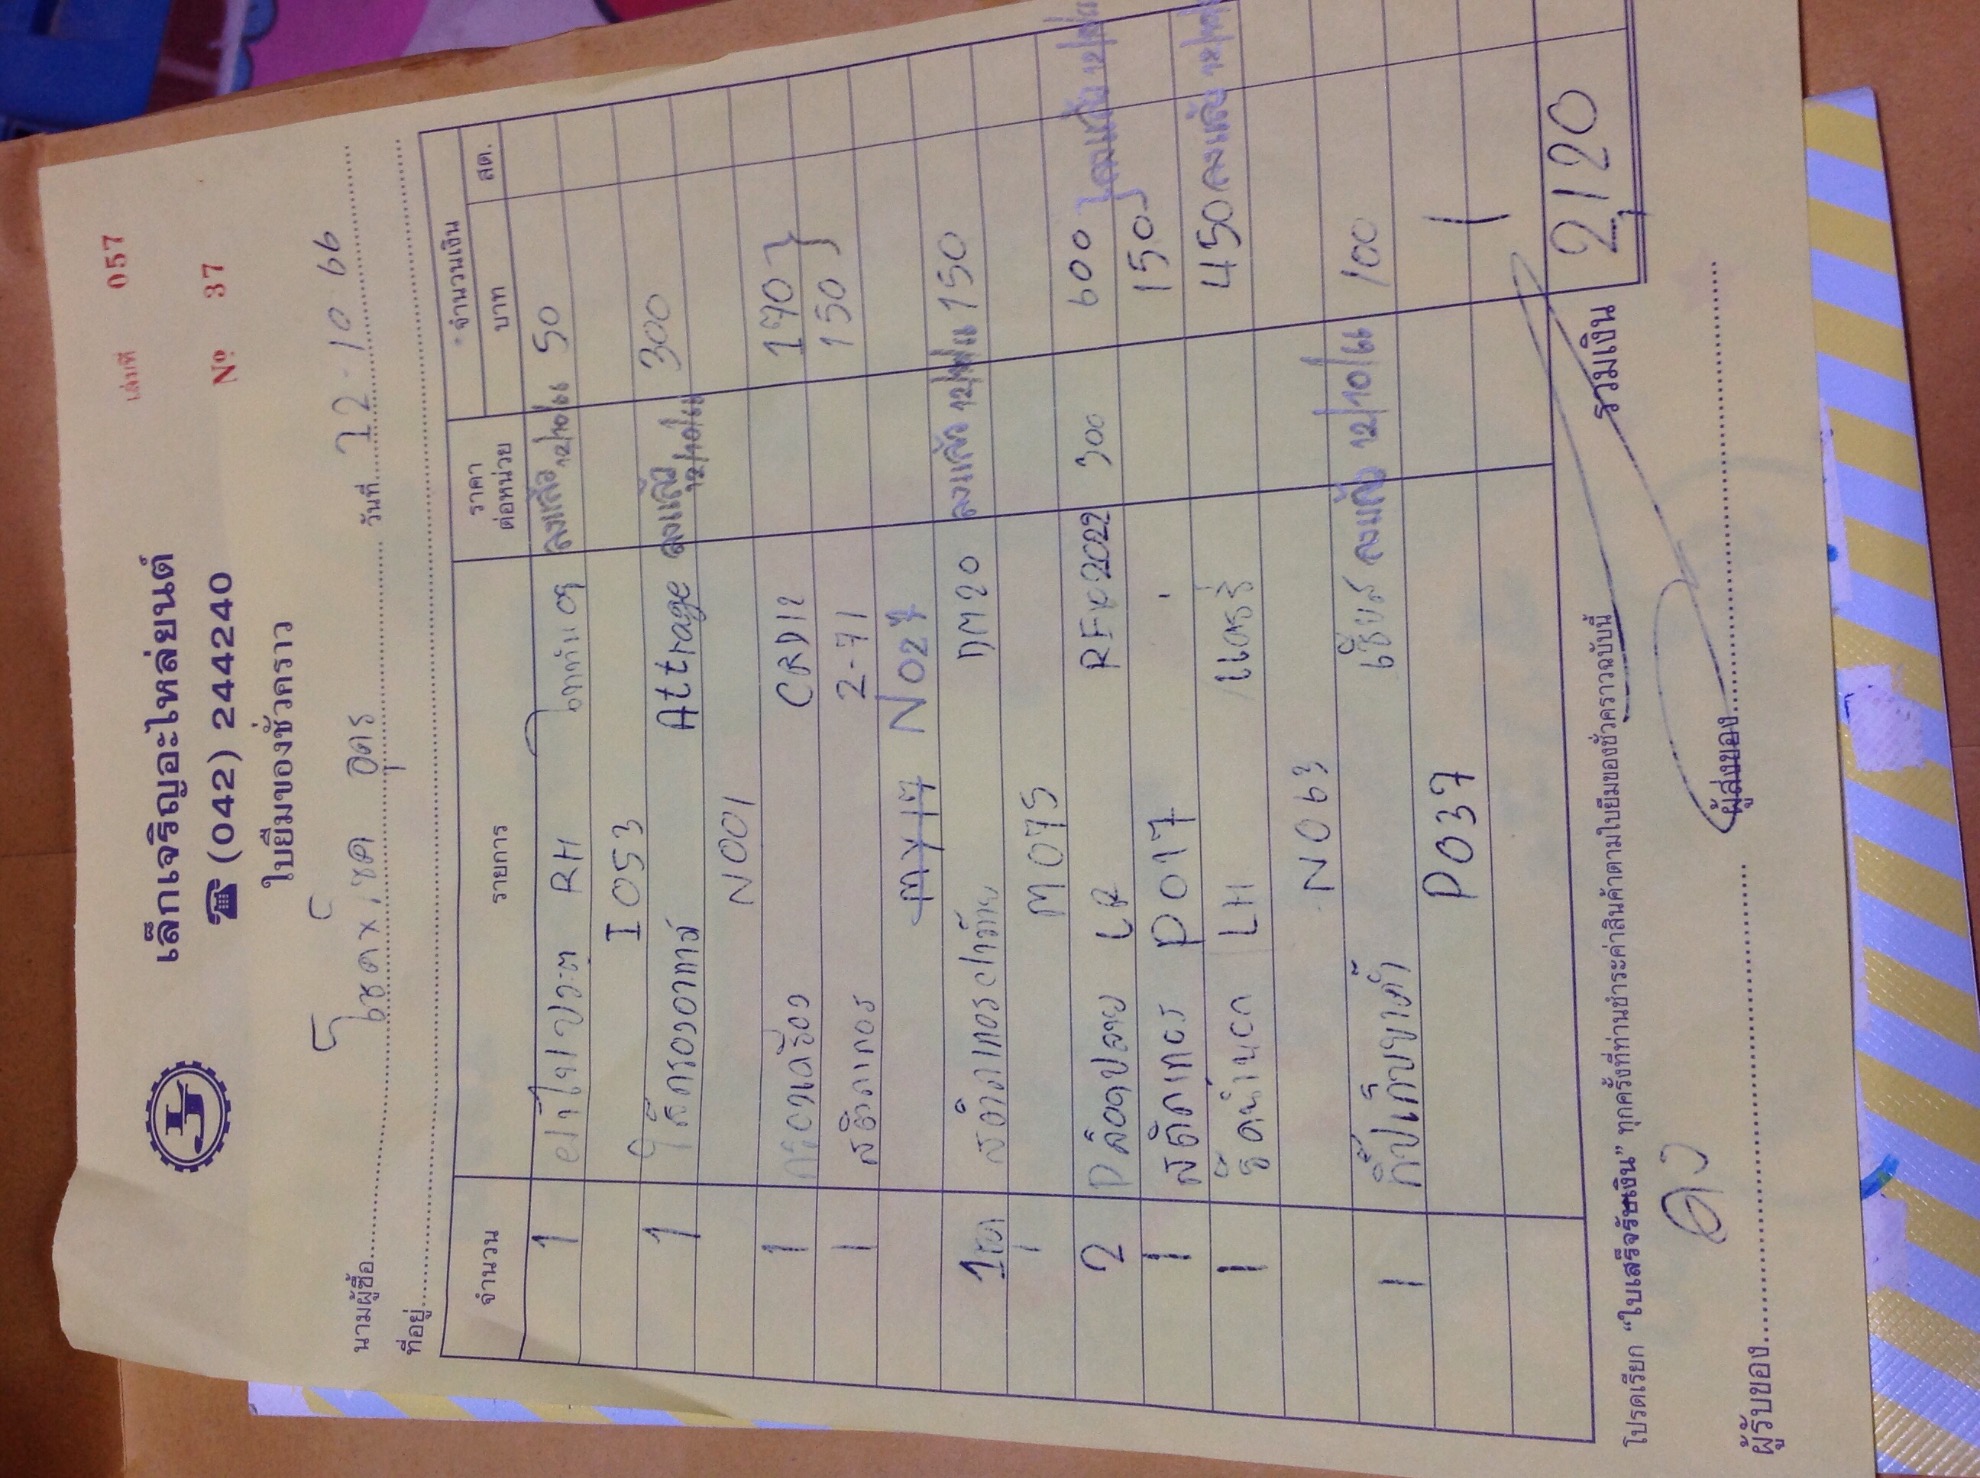 เล่มที่ 057
เล็กเจริญอะไหล่ยนต์
☎ (042) 244240
Nº 37
ใบยืมของชั่วคราว
นามผู้ซื้อ โชคค อุดร วันที่ 12-10 66
ที่อยู่
จำนวน รายการ ราคาต่อหน่วย จำนวนเงิน
บาท สต.
1 RH ลงแล้ว 12/10/66 50
I053
1 Attrage ลงแล้ว 12/10/66 300
N001
1 CRD12 170
1 สติกเกอร์ 2-71 150
MY17 N027
1 DM20 ลงแล้ว 150
M075
2 LR RF 2022 300 600 ลงแล้ว
1 สติกเกอร์ P017 150
1 LH 450 ลงแล้ว
N063
1 กิ๊ปเก็บขาค้ำ ลงแล้ว 12/10/66 100
P037
รวมเงิน 2,120
โปรดเรียก “ใบเสร็จรับเงิน” ทุกครั้งที่ท่านชำระค่าสินค้าตามใบยืมของชั่วคราวฉบับนี้
ผู้รับของ ผู้ส่งของ